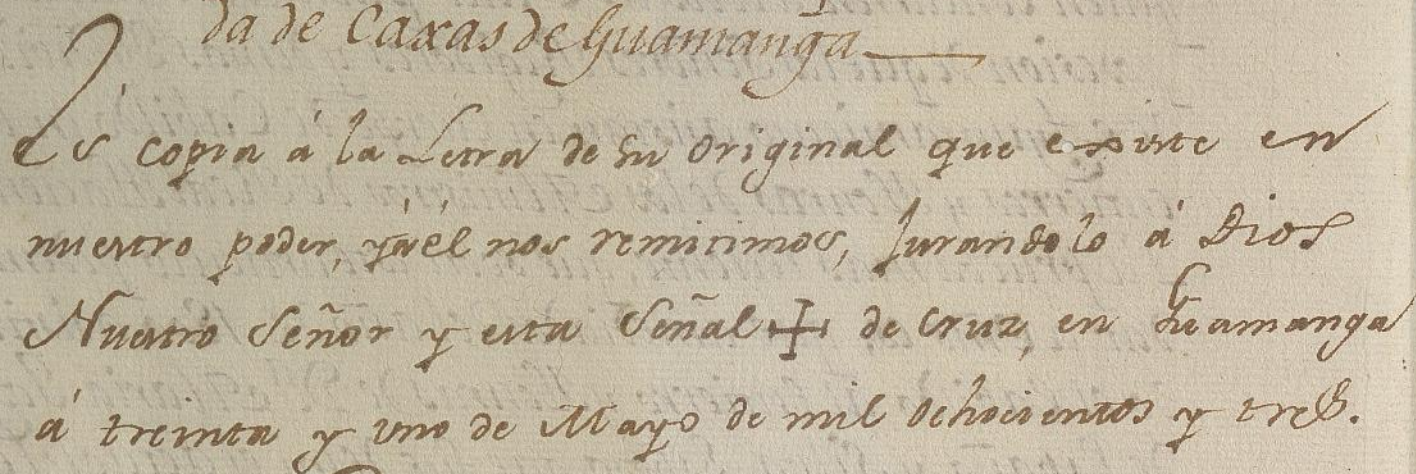 da de Caxas de Guamanga
Es copia á la Letra de su original que existe en
nuestro poder, y á él nos remitimos, Jurandolo á Dios
Nuestro Señor y esta Señal + de Cruz, en Guamanga
á treinta y uno de Mayo de mil ochocientos y tres.